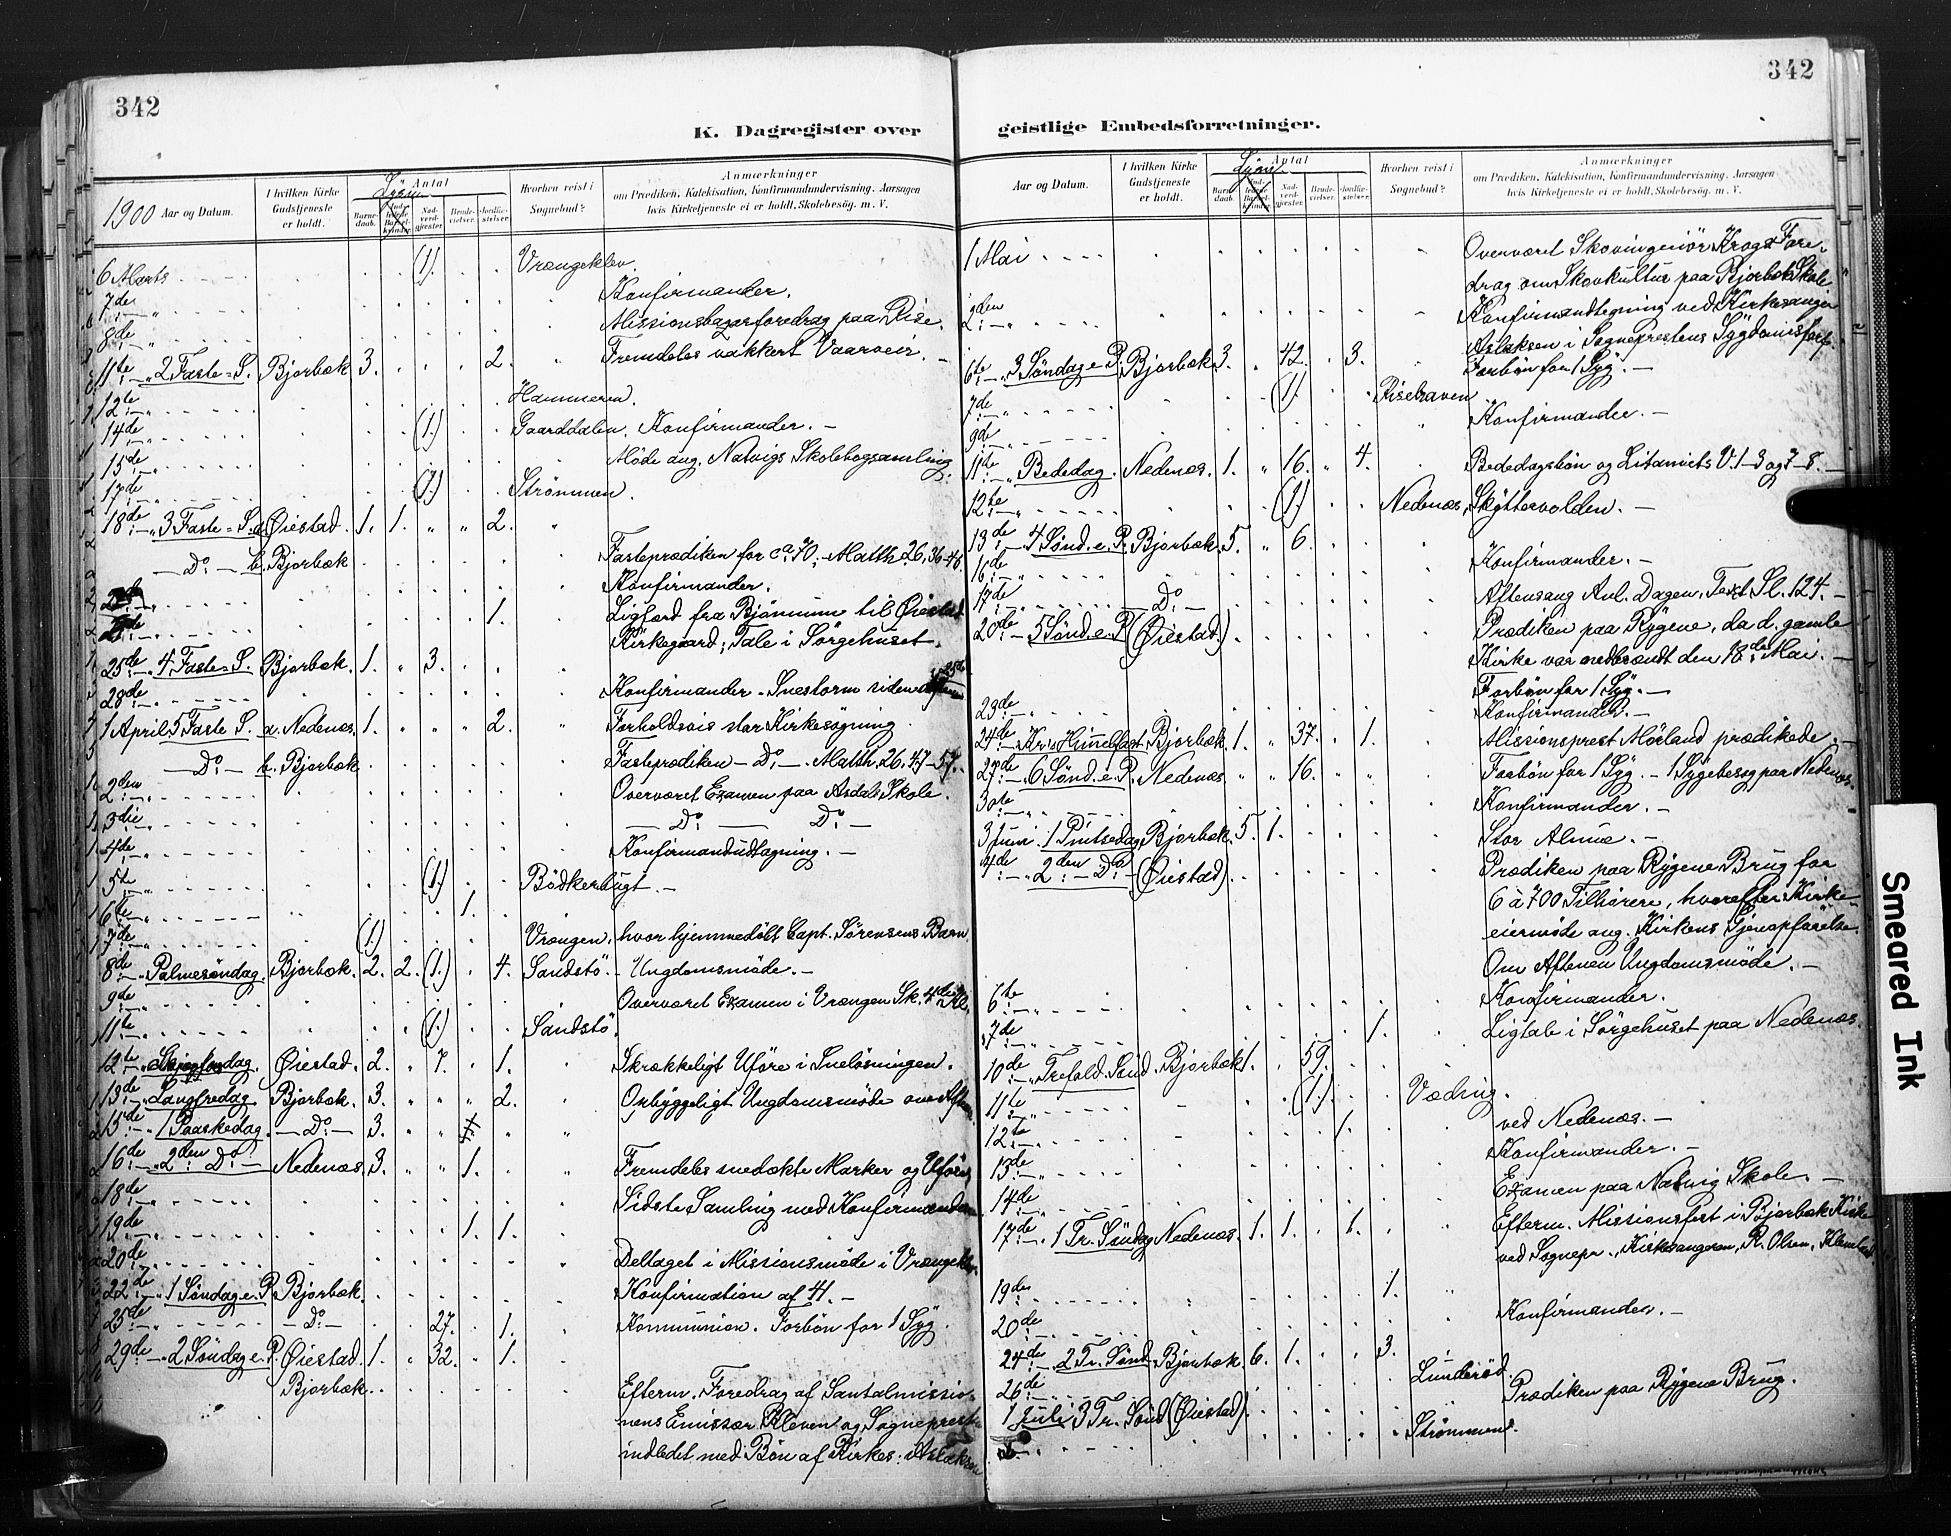 342
K. Dagregister over
1900 Aar og Datum.
I hvilken Kirke Gudstjeneste er holdt.
Antal
Barnedaab.
Nadverdgjæster.
Brudevielser.
Jordfæstelser.
Hvorhen reist i Sognebud?
Anmærkninger
om Prædiken, Katekisation, Konfirmandundervisning, Aarsagen
hvis Kirketjeneste ei er holdt, Skolebesøg, m. V.
6 Marts (1) Vrængeklev.
7de Konfirmander.
8de Missionsbazarforedrag paa Rise.
11te 2 Faste=S. Bjorbæk 3. 2. Fremdeles vakkert Vaarveir. –
12te Hammeren.
14de (1.) Gaarddalen. Konfirmander. –
15de Møde ang. Natvigs Skolebogsamling.
17de (1.) Strömmen.
18de 3 Faste=S. a. Øiestad. 1. 1. " " 2.
Do b. Bjorbæk Fasteprædiken for ca 70. – Matth. 26, 36-46.
Konfirmander.
1. Ligfærd fra Bjönnum til Øiestad
Kirkegaard; Tale i Sörgehuset.
25de 4 Faste=S. Bjorbæk. 1. " 3.
28de Konfirmander. – Snestorm siden
1 April 5 Faste S. a. Nedenæs 1. 2. Forholdsvis stor Kirkesögning
Do b. Bjorbæk Fasteprædiken – Do – Matth. 26, 47-57.
2den Overværet Examen paa Asdals Skole.
3die Do Do
4de Konfirmandudtagning. –
5te (1.) Bödkerbugt. –
6te 1.
7de (1) Vrængen, hvor hjemmedöbt Capt. Sörensens Barn
8de Palmesöndag Bjorbæk. 2. 2. (1.) 4. Sandstö. – Ungdomsmöde. –
9de Overværet Examen i Vrængen Sk. 4de Kl.
11te (1.) Sandstö.
12te Skjærtorsdag. Øiestad. 2. 7. 1. Skrækkeligt Uföre i Snelösningen.
13de Langfredag. Bjorbæk. 3. 2. Opbyggeligt Ungdomsmöde om Aften
15de 1 Paaskedag. – Do – 3.
16de 2den Do Nedenæs 3. 1. Fremdeles snedækte Marker og Uföre
18de Sidste Samling med Konfirmanderne
19de 1. 1.
20de Deltaget i Missionsmöde i Vrængeklev.
22de 1 Söndag e. P. Bjorbæk. Konfirmation af 41. –
25de – Do – 27. 1. Kommunion. Forbön for 1 Syg.
29de 2 Söndag e. P. Øiestad. 1. 32. 1.
Bjorbæk. Efterm. Foredrag af Santalmissio-
nens Emissær Kleven og Sogneprest
indledet med Bön af Kirkes. Aslaksen
342
geistlige Embedsforretninger.
Aar og Datum.
I hvilken Kirke Gudstjeneste er holdt.
Antal
Barnedaab.
Nadverdgjæster.
Brudevielser.
Jordfæstelser.
Hvorhen reist i Sognebud?
Anmærkninger
om Prædiken, Katekisation, Konfirmandundervisning, Aarsagen
hvis Kirketjeneste ei er holdt, Skolebesøg, m. V.
1 Mai Overværet Skovingeniör Krogs Fore-
drag om Skovkultur paa Bjorbæk Skole
2den Konfirmandtegning ved Kirkesanger
Aslaksen i Sogneprestens Sygdomsforf.
6te 3 Söndag e. P. Bjorbæk 3. 42. 3. Forbön for 1 Syg. –
7de (1) Risehaven
9de Konfirmander. –
11te Bededag. Nedenæs. 1. " 16. " 4. Bededagsbön og Litaniets V. 1-3 og 7-8.
12te (1) Nedenæs, Skyttervolden. –
13de 4 Sönd. e. P. Bjorbæk. 5. " 6.
16de Konfirmander. –
17de – Do – Aftensang Anl. Dagen, Text Sl. 124. –
20de 5 Sönd. e. P. (Øiestad.) Prædiken paa Rygene, da d. gamle
Kirke var nedbrændt den 18de Mai. –
Forbön for 1 Syg. –
23de Konfirmander. –
24de Kr. Himmelfart Bjorbæk. 1. " 37. 1. Missionsprest Mörland prædikede. –
27de 6 Sönd. e. P. Nedenæs " " 16. " Forbön for 1 Syg. – 1 Sygebesög paa Nedenæs.
30te Konfirmander. –
3 Juni. 1 Pintsedag Bjorbæk. 5. 1. Stor Almue. –
4de 2den Do (Øiestad). Prædiken paa Rygene Brug for
6 à 700 Tilhörere, hvorefter Kirke-
eiermöde ang. Kirkens Gjenopförelse.
Om Aftenen Ungdomsmöde. –
6te Konfirmander.
7de 1. Ligtale i Sörgehuset paa Nedenæs.
10de Trefold. Sönd. Bjorbæk 1. 59.
11te (1.) Vædrig.
12te 1. ved Nedenæs. –
13de Konfirmander. –
14de Examen paa Natvig Skole. –
17de 1 Tr. Söndag Nedenæs. 1. 1. 1. Efterm. Missionsfest i Bjorbæk Kirke
ved Sognepr., Kirkesangeren, R. Olsen,
19de 1.
20de Konfirmander. –
24de 2 Tr. Sönd. Bjorbæk. 6. 1. 3.
26de Lunderöd.
1 Juli 3 Tr. Sönd (Øiestad). Prædiken paa Rygene Brug.
Strömmen.
Smeared Ink